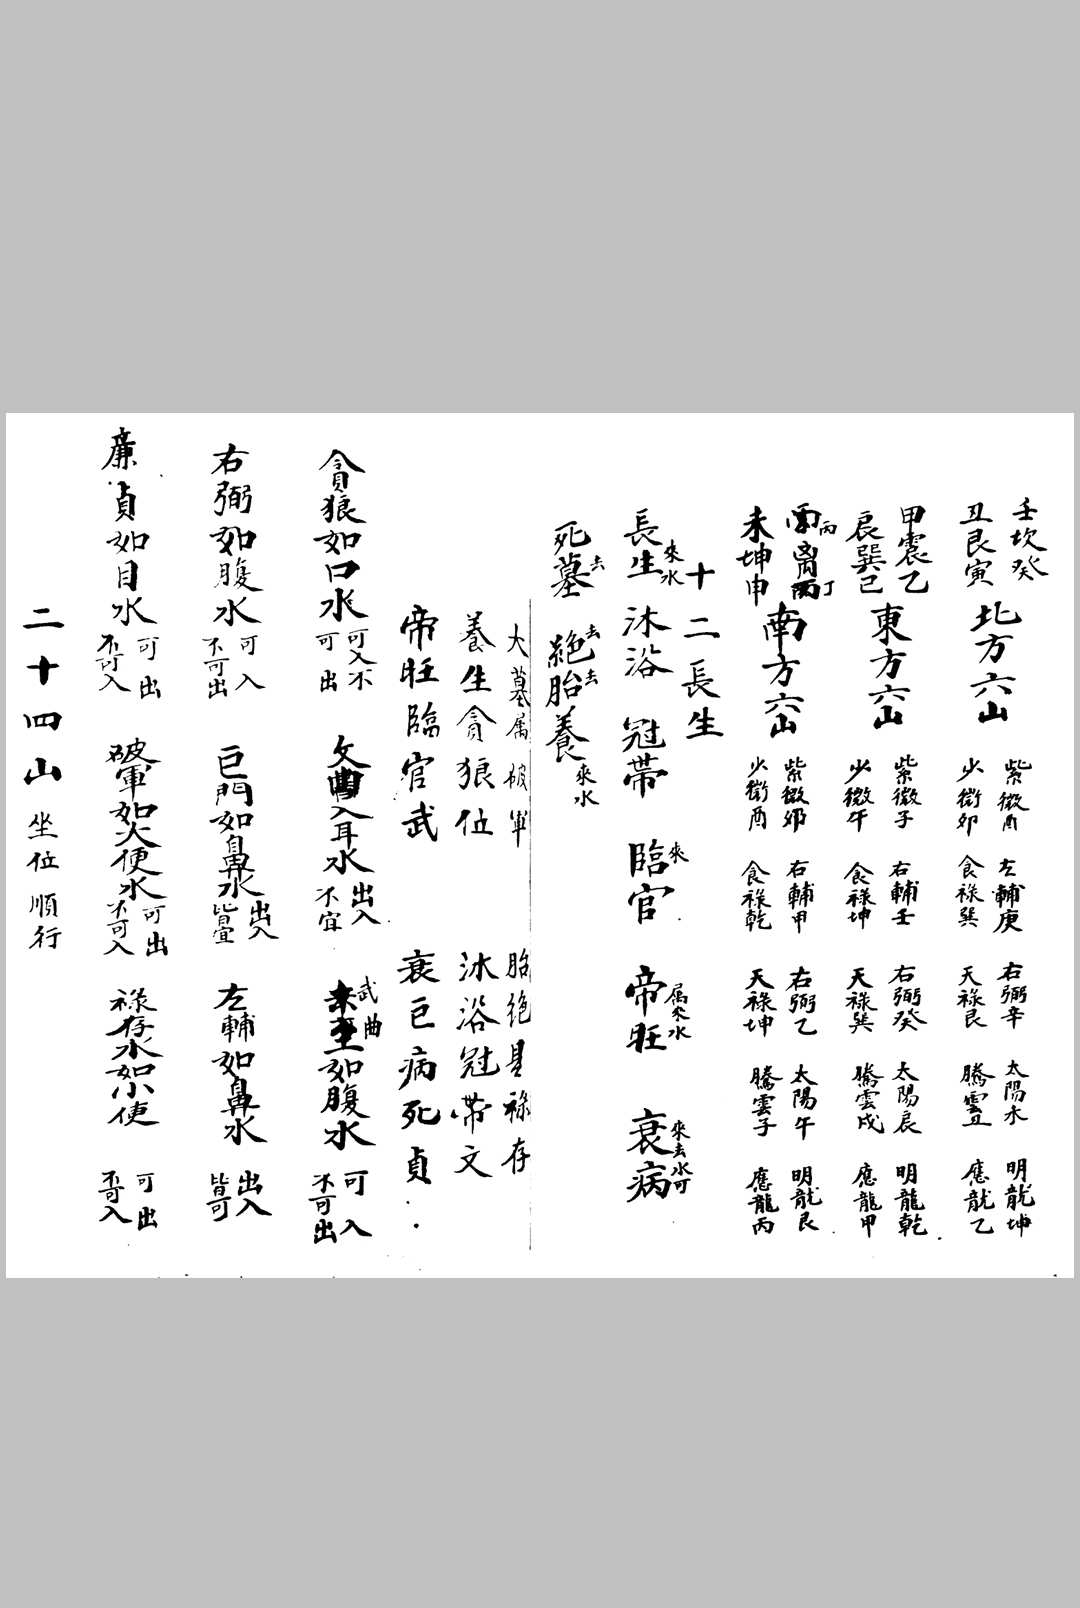 壬坎癸
丑艮寅
北方六山
紫微酉 左輔庚 右弼辛 太陽木 明龍坤
少微卯 食祿巽 天祿艮 騰雲丑 應龍乙
甲震乙
辰巽巳
東方六山
紫微子 右輔壬 右弼癸 太陽辰 明龍乾
少微午 食祿坤 天祿巽 騰雲戌 應龍甲
丙離丁
未坤申
南方六山
紫微卯 右輔甲 右弼乙 太陽午 明龍艮
少微酉 食祿乾 天祿坤 騰雲子 應龍丙
十二長生
長生來水 沐浴 冠帶 臨官來 帝旺属來水 衰病來去水可
死墓去 絕去胎去養來水
大墓属破軍 胎絕是祿存
養生貪狼位 沐浴冠帶文
帝旺臨官武 衰巳病死貞
貪狼如口水可入不可出 文曲入耳水出入不宜 武曲如腹水可入不可出
右弼如腹水可入不可出 巨門如鼻水出入皆宜 左輔如鼻水出入皆可
廉貞如目水可出不可入 破軍如大便水可出不可入 祿存水如小便可出不可入
二十四山坐位順行